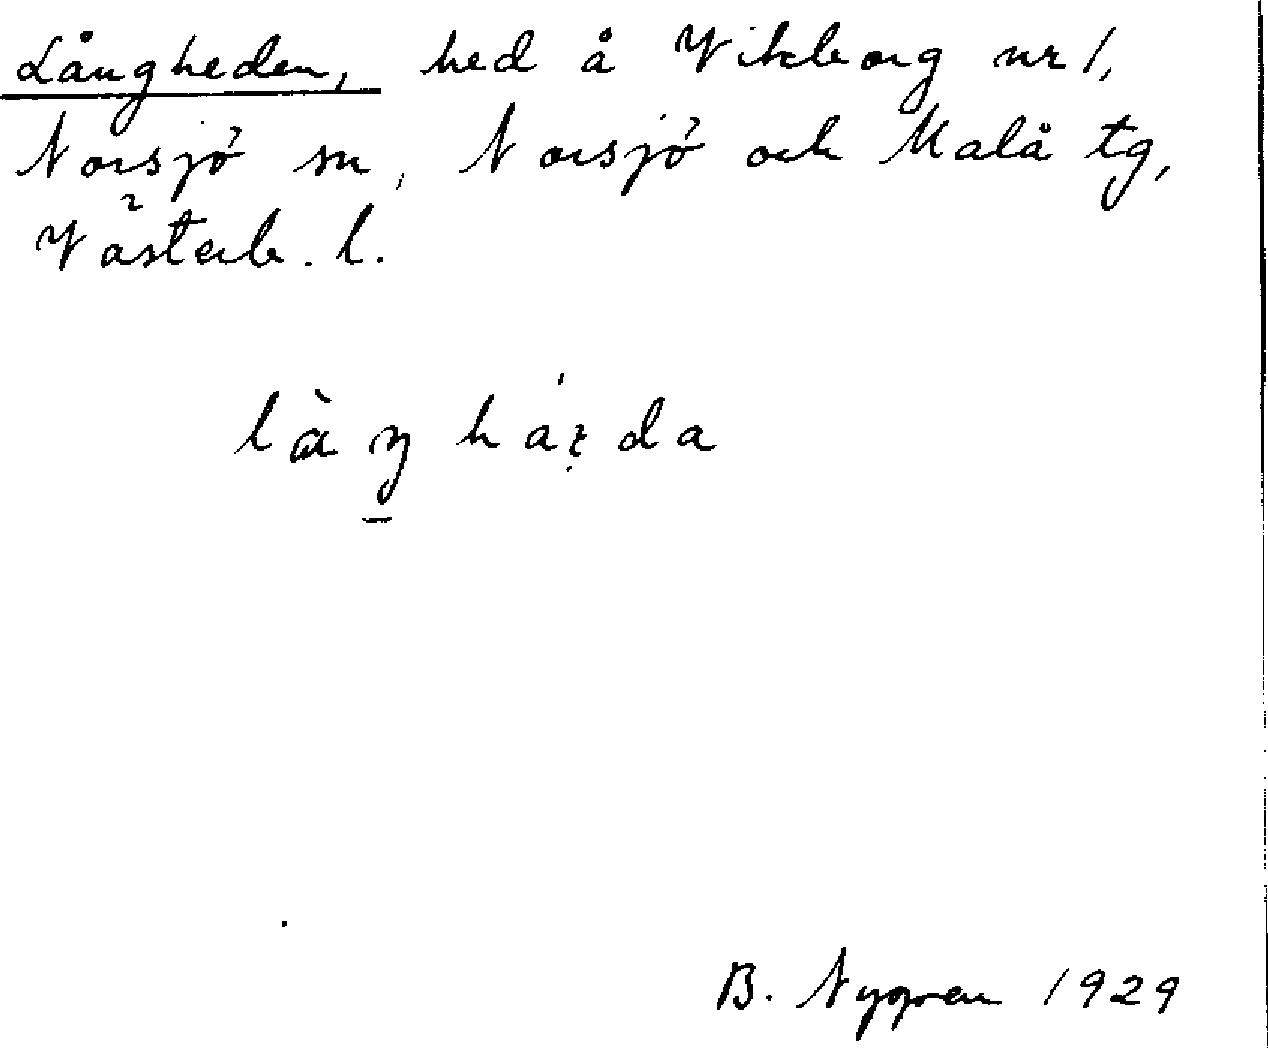 Långheden, hed å Vikborg nr 1,
Norsjö sn, Norsjö och Malå tg,
Västerb. l.
B. Nygren 1929